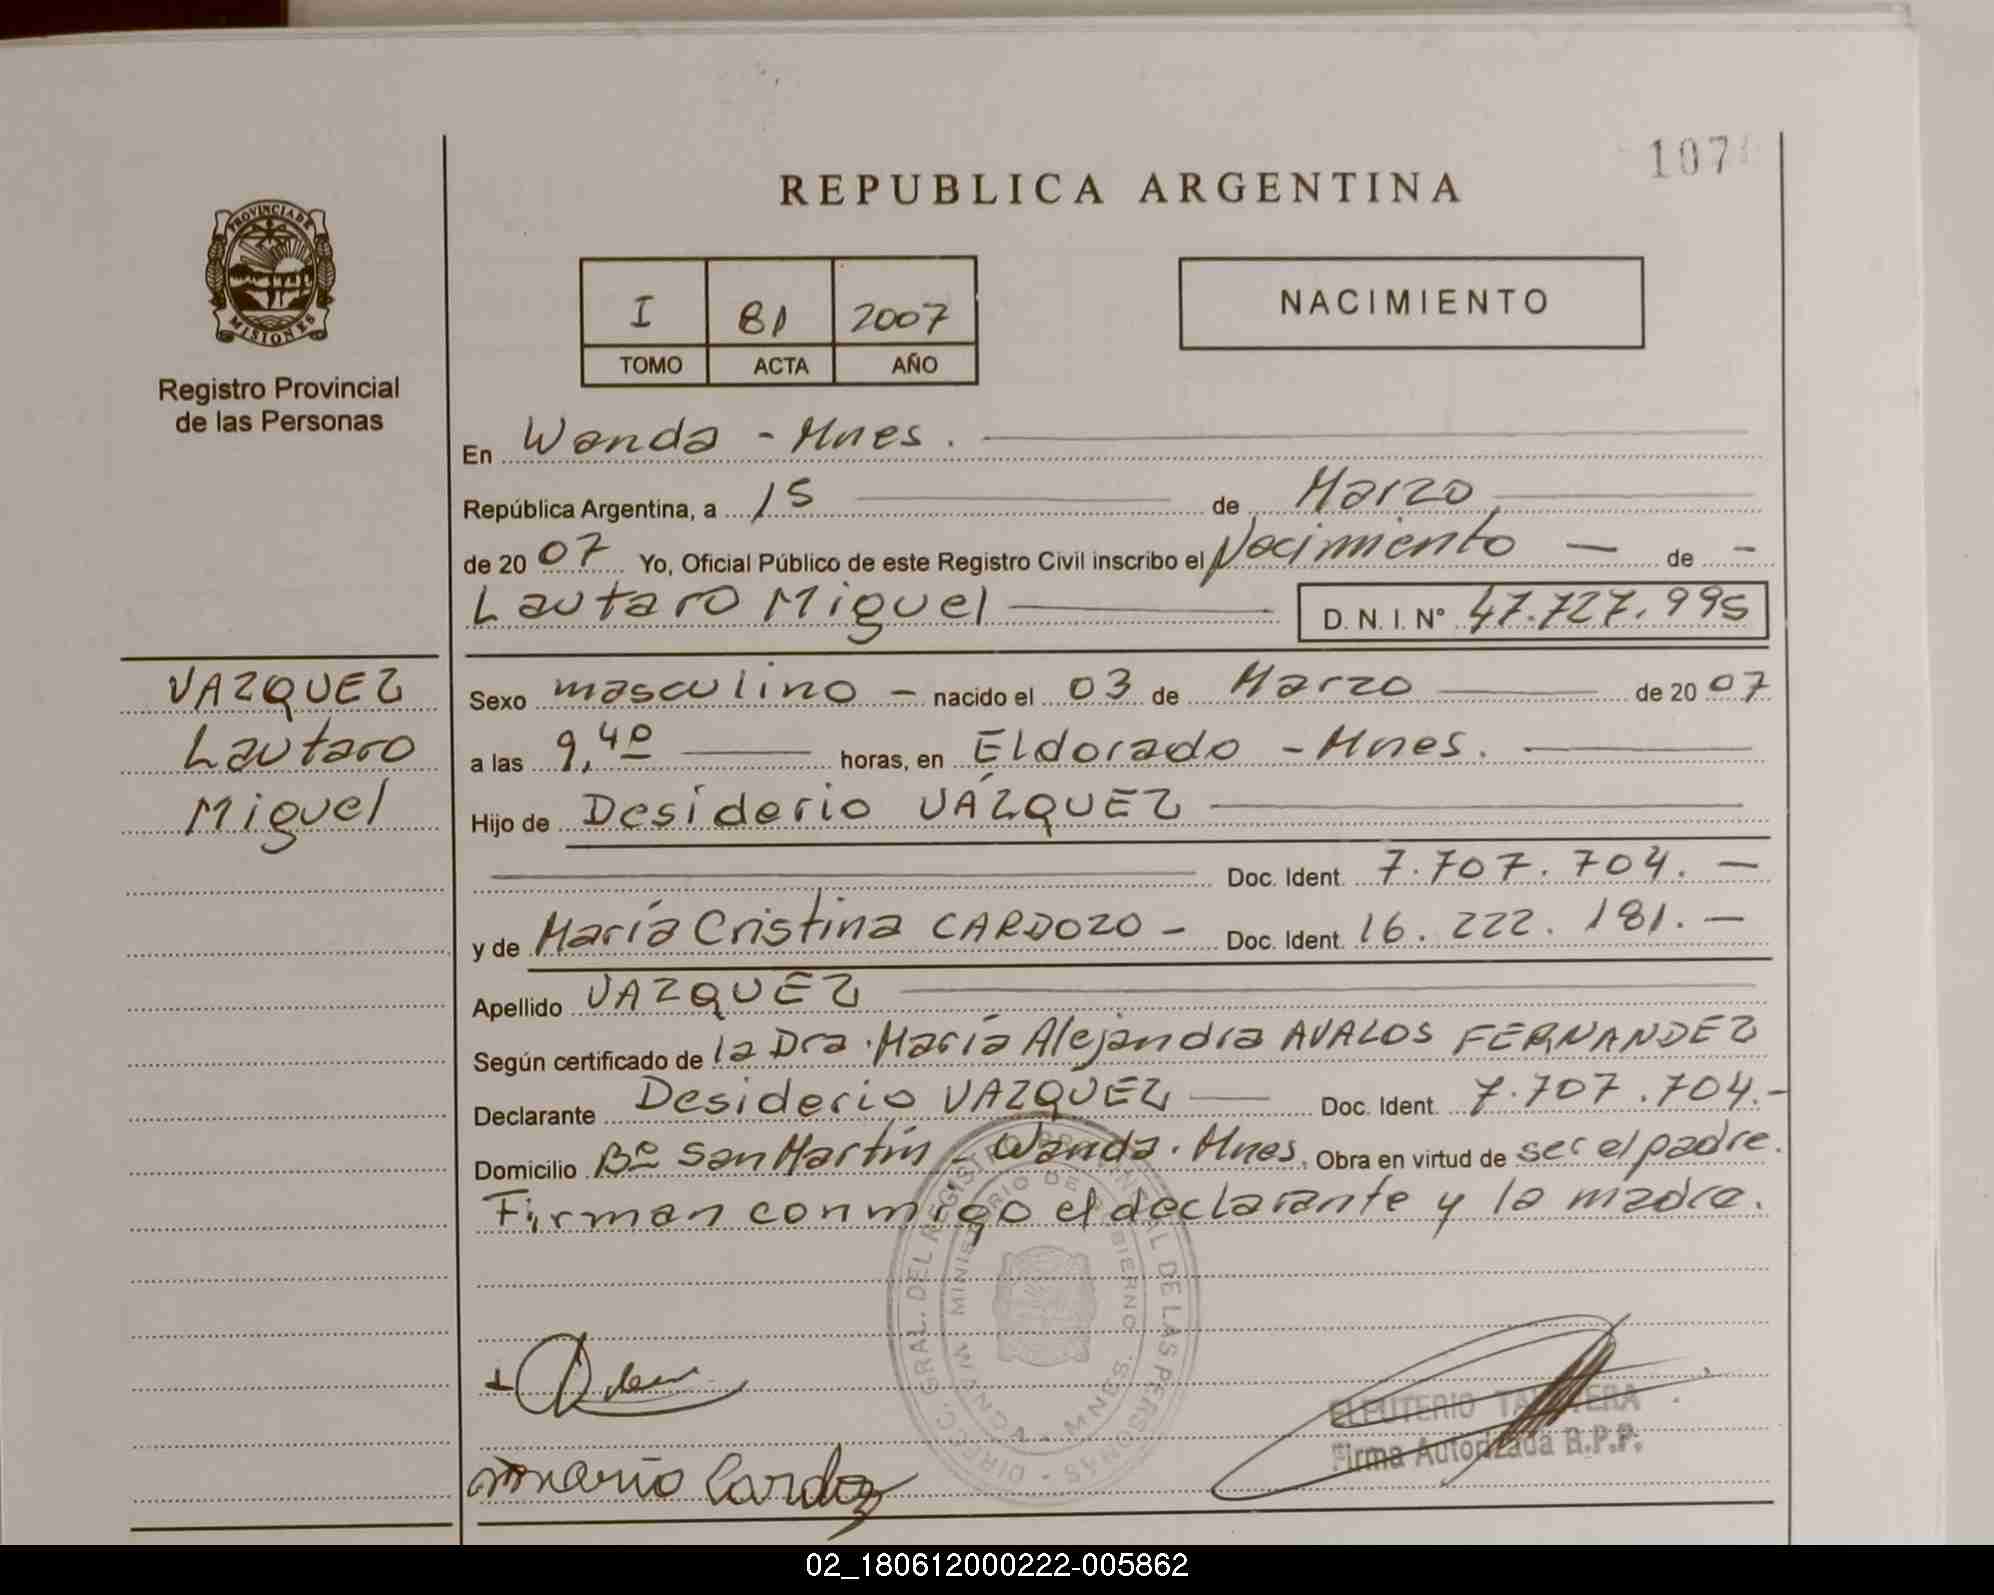 107
REPUBLICA ARGENTINA
PROVINCIA DE
MISIONES
Registro Provincial
de las Personas
I 81 2007
TOMO ACTA AÑO
NACIMIENTO
En Wanda - Mnes.
República Argentina, a 15 de Marzo
de 2007 Yo, Oficial Público de este Registro Civil inscribo el Nacimiento — de -
Lautaro Miguel D. N. I. Nº 47.727.995
VAZQUEZ
Lautaro
Miguel
Sexo masculino - nacido el 03 de Marzo de 2007
a las 9,40 horas, en Eldorado - Mnes.
Hijo de Desiderio VÁZQUEZ
Doc. Ident. 7.707.704. —
y de María Cristina CARDOZO - Doc. Ident. 16.222.181. —
Apellido VAZQUEZ
Según certificado de la Dra. María Alejandra AVALOS FERNANDEZ
Declarante Desiderio VAZQUEZ Doc. Ident. 7.707.704.-
Domicilio Bº San Martín - Wanda. Mnes. Obra en virtud de ser el padre.
Firman conmigo el declarante y la madre.
DIRECC. GRAL. DEL REGISTRO PROVINCIAL DE LAS PERSONAS
MINISTERIO DE GOBIERNO
MNES.
ELEUTERIO
Firma Autorizada R.P.P.
02_180612000222-005862